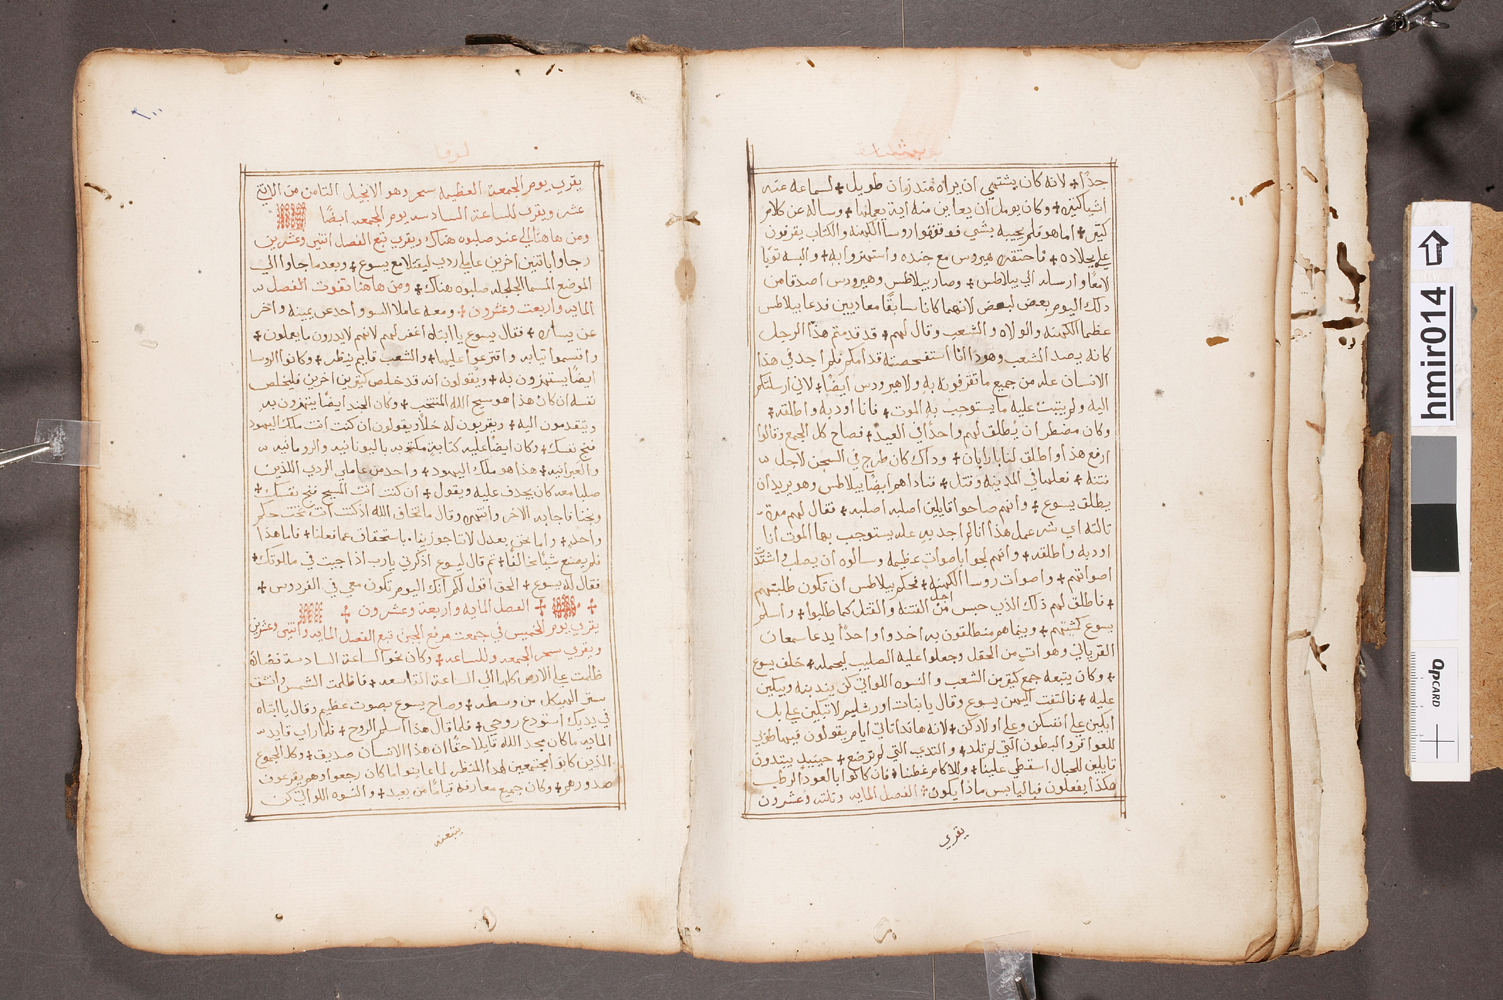 جدًا + لانه كان يشتهي ان يراه منذ زمان طويل + لسماعه عنه
اشيا كثيره + وكان يومل ان يعاين منه اية يعملها + وساله عن كلام
كثير + اما هو فلم يجيبه بشي فوقفوا روسا الكهنه والكتاب يقرفون
عليه بجلاده + فاحتقره هيرودس مع جنده واستهزوا به + والبسه ثوبًا
لامعًا وارسله الي بيلاطس + وصار بيلاطس وهيرودس اصدقا من
ذلك اليوم بعض لبعض لانهما كانا سابقًا معاديين فدعا بيلاطس
عظما الكهنه والولاه والشعب وقال لهم + قد قدمتم هذا الرجل
كانه يصد الشعب وهوذا انا استفحصته قدامكم فلم اجد في هذا
الانسان عله من جميع ما تقرفونه به ولا هيرودس ايضًا + لاني ارسلتكم
اليه ولم يتبت عليه ما يستوجب به الموت + فانا اودبه واطلقه +
وكان مضطر ان يُطلق لهم واحدًا في العيد + فصاح كل الجمع وقالوا
ارفع هذا واطلق لنا بارابان + وذاك كان طرح في السجن لاجل
فتنه + فعلها في المدينه وقتل + فناداهم ايضًا بيلاطس وهو يريد ان
يطلق يسوع + وانهم صاحوا قايلين اصلبه اصلبه + فقال لهم مرة
تالته اي شر عمل هذا انا لم اجد به عله يستوجب بها الموت انا
اودبه واطلقه + وانهم لجوا باصوات عظيمه وسالوه ان يصلب واشتدت
اصواتهم + واصوات روسا الكهنه + فحكم بيلاطس ان تكون طلبتهم
+ فاطلق لهم ذلك الذي حبس من اجل الفتنه والقتل كما طلبوا + واسلم
يسوع كشيتهم + وبينما هم منطلقون به اخدوا واحدًا يدعا سمعان
القرياني وهو ات من الحقل وجعلوا عليه الصليب ليحمله + خلف يسوع
+ وكان يتبعه جمع كثير من الشعب والنسوه اللواتي كن يندبنه ويبكين
عليه + فالتفت اليهن يسوع وقال يا بنات اورشليم لا تبكين علي بل
ابكين علي انفسكن وعلي اولادكن + لانه هاندا تاتي ايام يقولون فيها طوبي
للعواقر والبطون التي لم تلد + والتدي التي لم ترضع + حينيد يبتدون
قايلين للجبال اسقطي علينا + وللاكام غطينا + فان كانوا بالعود الرطب
هكذا يفعلون فباليابس ماذا يكون + الفصل المايه وتلته وعشرون
يقري
لوقا
يقري يوم الجمعه العظيمه سحر وهو الانجيل التامن من الاتني
عشر ويقري للساعه السادسه يوم الجمعه ايضًا
ومن هاهنا الي عند صلبوه هناك ويقري تبع الفصل اتنين وعشرين
وجاوا باتنين اخرين عاملي ردي ليقتلا مع يسوع + وبعد ما جاوا الي
الموضع المسما الجلجله صلبوه هناك + ومن هاهنا تفوت الفصل
المايه واربعت وعشرون + ومعه عاملا السو واحد عن يمينه واخر
عن يساره + فقال يسوع يا ابتاه اغفر لهم لانهم لا يدرون ما يعملون +
واقتسموا تيابه واقترعوا عليها + والشعب قايم ينظر + وكانوا الروسا
ايضًا يستهزون به + ويقولون انه قد خلص كتيرين اخرين فليخلص
نفسه ان كان هذا هو مسيح الله المنتخب + وكان الجند ايضًا يتهزون به
ويتقدمون اليه + ويقربون له خلًا ويقولون ان كنت انت ملك اليهود
فنج نفسك + وكان ايضًا عليه كتابة مكتوبه باليونانيه والرومانيه
والعبرانيه + هذا هو ملك اليهود + واحد من عاملي الردي اللذين
صلبا معه كان يجدف عليه ويقول + ان كنت انت المسيح فنج نفسك +
ونجنا فاجابه الاخر وانتهره وقال ما تخاف الله اذ كنت انت تحت حكم
واحد + واما نحن بعدل لاننا جوزينا باستحقاق بما فعلنا + فاما هذا
فلم يصنع شيًا مخالفًا + تم قال ليسوع اذكرني يارب اذا جيت في ملكوتك +
فقال له يسوع + الحق اقول لكم انك اليوم تكون معي في الفردوس +
+ الفصل المايه واربعة وعشرون +
يقري يوم الخميس في جمعت مرفع الجبن تبع الفصل المايه واتني وعشرين
ويقري سحر الجمعه وللساعه + وكان نحو الساعه السادسه فصارة
ظلمت علي الارض كلها الي الساعة التاسعه + فاظلمت الشمس وانشق
ستر الهيكل من وسطه + وصاح يسوع بصوت عظيم وقال يا ابتاه
في يديك استودع روحي + فلما قال هذا اسلم الروح + فلما راي قايد
المايه ما كان مجد الله قايلًا حقًا ان هذا الانسان صديق + وكل الجموع
الذين كانوا مجتمعين لهذا المنظر لما عاينوا ما كان رجعوا وهم يقرعون
صدورهم + وكان جميع معارفه قيامًا من بعيد + والنسوه اللواتي كن
يتبعنه
٢٠٠
hmir014
QPCARD